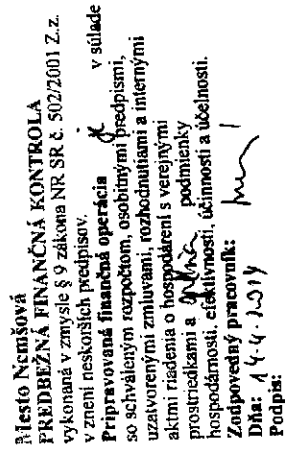 Mesto Nemšová
PREDBEŽNÁ FINANČNÁ KONTROLA
vykonaná v zmysle § 9 zákona NR SR č. 502/2001 Z.z.
v znení neskorších predpisov.
Pripravovaná finančná operácia je v súlade
so schváleným rozpočtom, osobitnými predpismi,
uzatvorenými zmluvami, rozhodnutiami a internými
aktmi riadenia o hospodárení s verejnými
prostriedkami a spĺňa podmienky
hospodárnosti, efektívnosti, účinnosti a účelnosti.
Zodpovedný pracovník:
Dňa: 14.4.2014
Podpis: